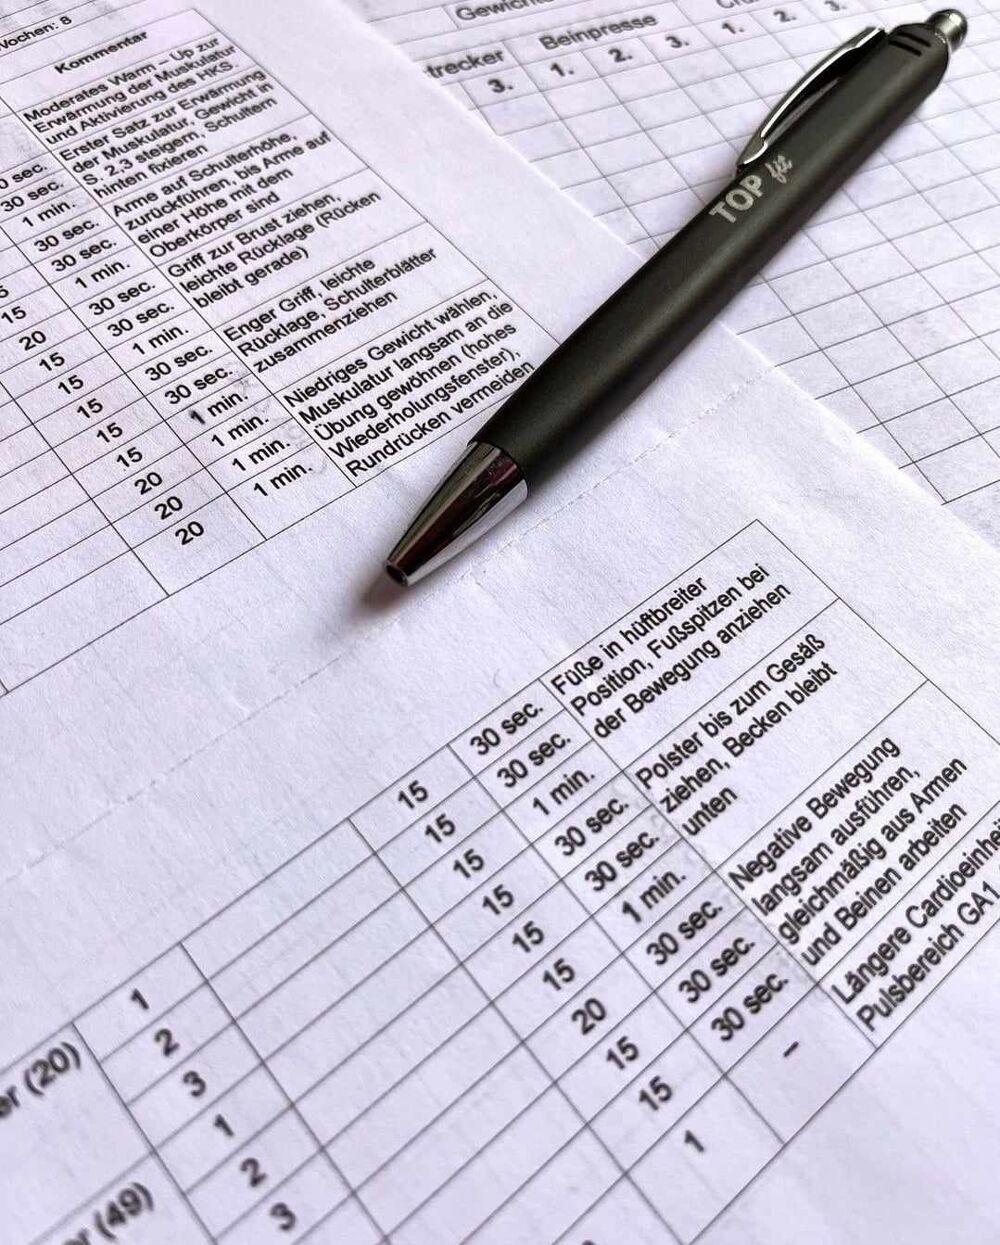 Wochen: 8
Kommentar
Moderates Warm – Up zur
Erwärmung der Muskulatur
und Aktivierung des HKS.
Erster Satz zur Erwärmung
der Muskulatur, Gewicht in
S. 2,3 steigern, Schultern
hinten fixieren
Arme auf Schulterhöhe,
zurückführen, bis Arme auf
einer Höhe mit dem
Oberkörper sind
Griff zur Brust ziehen,
leichte Rücklage (Rücken
bleibt gerade)
Enger Griff, leichte
Rücklage, Schulterblätter
zusammenziehen
Niedriges Gewicht wählen,
Muskulatur langsam an die
Übung gewöhnen (hohes
Wiederholungsfenster),
Rundrücken vermeiden
30 sec.
1 min.
30 sec.
30 sec.
15 1 min.
20 30 sec.
15 30 sec.
15 1 min.
15 30 sec.
15 30 sec.
15 1 min.
20 1 min.
20 1 min.
20 1 min.
Beinpresse
3. 1. 2. 3. 1. 2. 3.
TOP fit
15 30 sec.
15 30 sec.
15 1 min.
15 30 sec.
15 30 sec.
15 1 min.
20 30 sec.
15 30 sec.
15 30 sec.
1 –
Füße in hüftbreiter
Position, Fußspitzen bei
der Bewegung anziehen
Polster bis zum Gesäß
ziehen, Becken bleibt
unten
Negative Bewegung
langsam ausführen,
gleichmäßig aus Armen
und Beinen arbeiten
Längere
Pulsbereich GA1
(20)
1
2
3
(49)
1
2
3